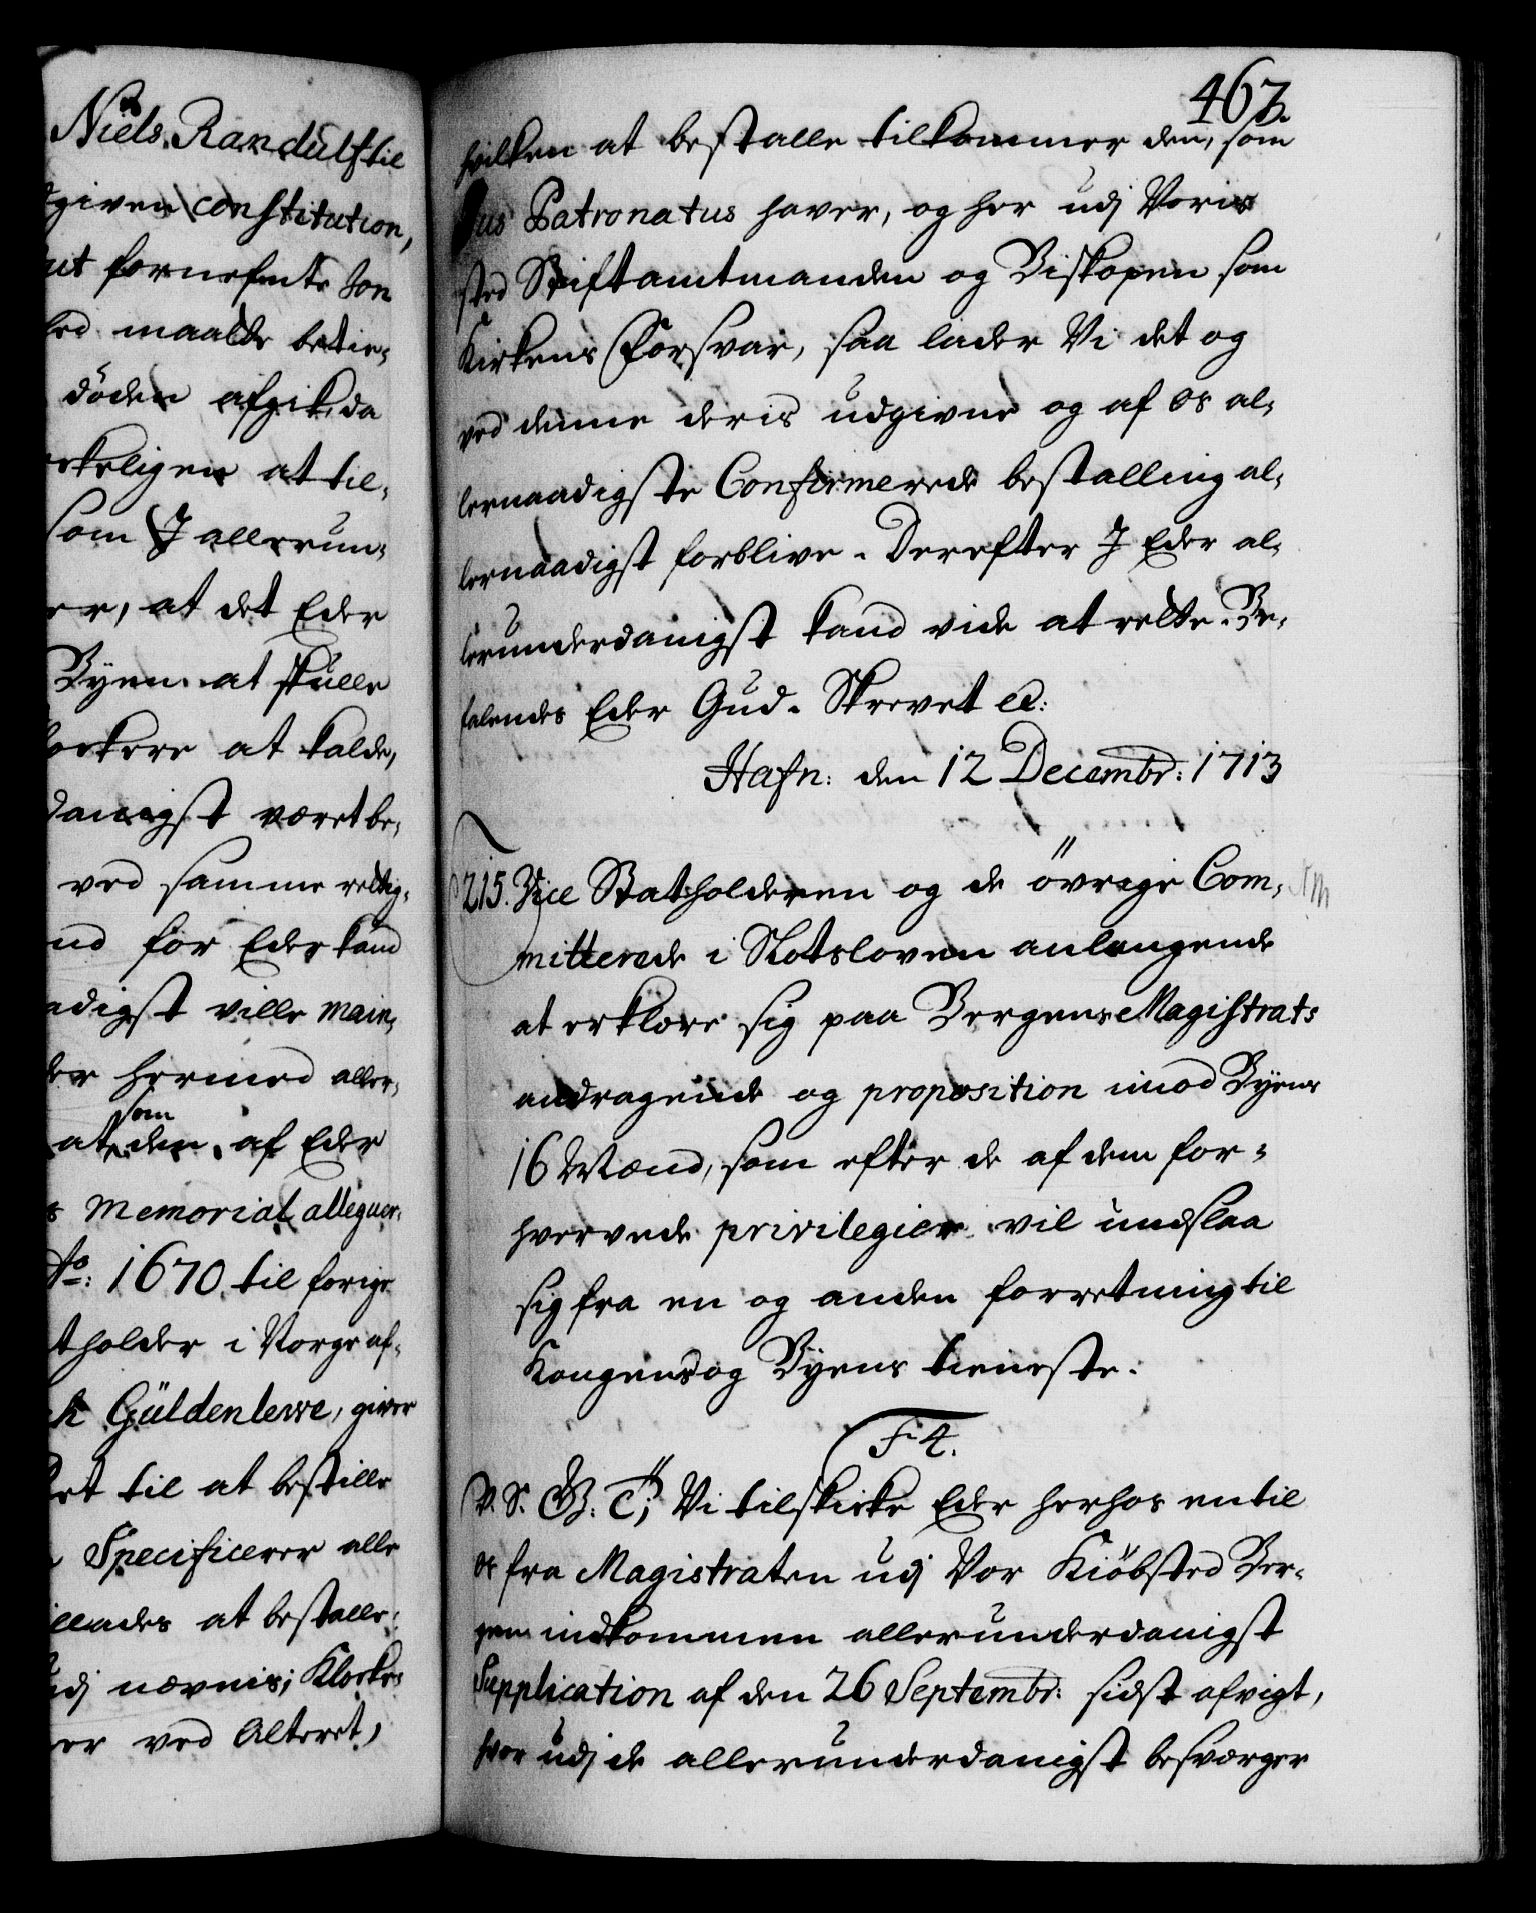 Niels Randulf til
given constitution,
ut fornefnte Son
led maatte betie-
döden afgik, da
rkeligen at til-
som I allerun-
er, at det Eder
Byen at skulle
lockere at kalde,
danigst været be-
ved samme rettig-
nd for Eder kand
adigst ville main-
der hermed aller-
at som den af Eder
s Memorial alleguer-
Ao: 1670 til forige
tholder i Norge af-
ck Güldenlewe, giver
ret til at bestille
Specificerer alle
illades at bestalle:
udj nævnis; Klocker
er ved Alteret,
463.
hvilken at bestalle tilkommer den, som
Jus Patronatus haver, og her udj Voris
sted Stiftamtmanden og Biskopen som
Kirkens Forsvar, saa lader Vi det og
ved denne deris udgivne og af os al-
lernaadigste Confirmerede bestalling al-
lernaadigst forblive. Derefter I Eder al-
lerunderdanigst kand vide at rette. Be-
falendes Eder Gud. Skrevet etc:
Hafn: den 12 Decembr: 1713
215. Vice Statholderen og de övrige Com-
mitterede i Slotsloven anlangende
at erklære sig paa Bergens Magistrats
andragende og proposition imod Byens
16 Mænd, som efter de af dem for-
hvervede privilegier vil undslaa
sig fra en og anden forretning til
Kongens og Byens tieneste.
F 4.
V. S. G. T; Vi tilskicke Eder herhos en til
os fra Magistraten udj Vor Kiöbsted Ber-
gen indkommen allerunderdanigst
Supplication af den 26 Septembr: sidst afvigt,
hvor udj de allerunderdanigst besværger